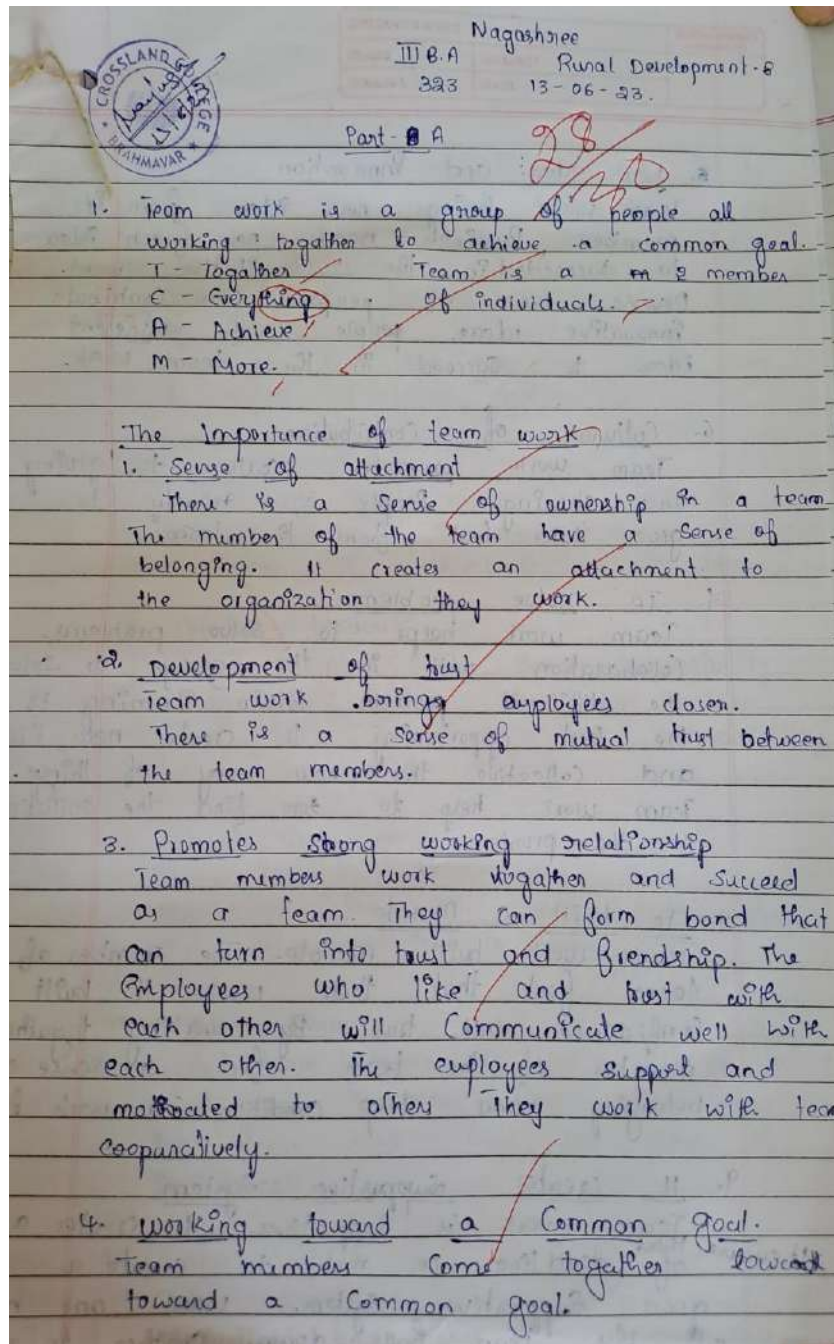 Nagashree
III B.A
Rural Development - 6
323
13-06-23.
CROSSLAND COLLEGE
BRAHMAVAR
Part - A
28/30
1. Team work is a group of people all
working togather to achieve a common goal.
T - Togather Team is a 2 member
E - Everything of individuals.
A - Achieve
M - More.
The Importance of team work
1. Sense of attachment
There is a Sense of ownership in a team
The member of the team have a Sense of
belonging. It creates an attachment to
the organization they work.
2. Development of trust
Team work brings employees closer.
There is a Sense of mutual trust between
the team members.
3. Promotes Strong working relationship
Team members work togather and Succeed
as a team. They can form bond that
can turn into trust and friendship. The
Employees who like and trust with
each other will Communicate well with
each other. The employees Support and
motivated to others They work with team
cooparatively.
4. Working toward a Common goal.
Team members Come togather
toward a Common goal.